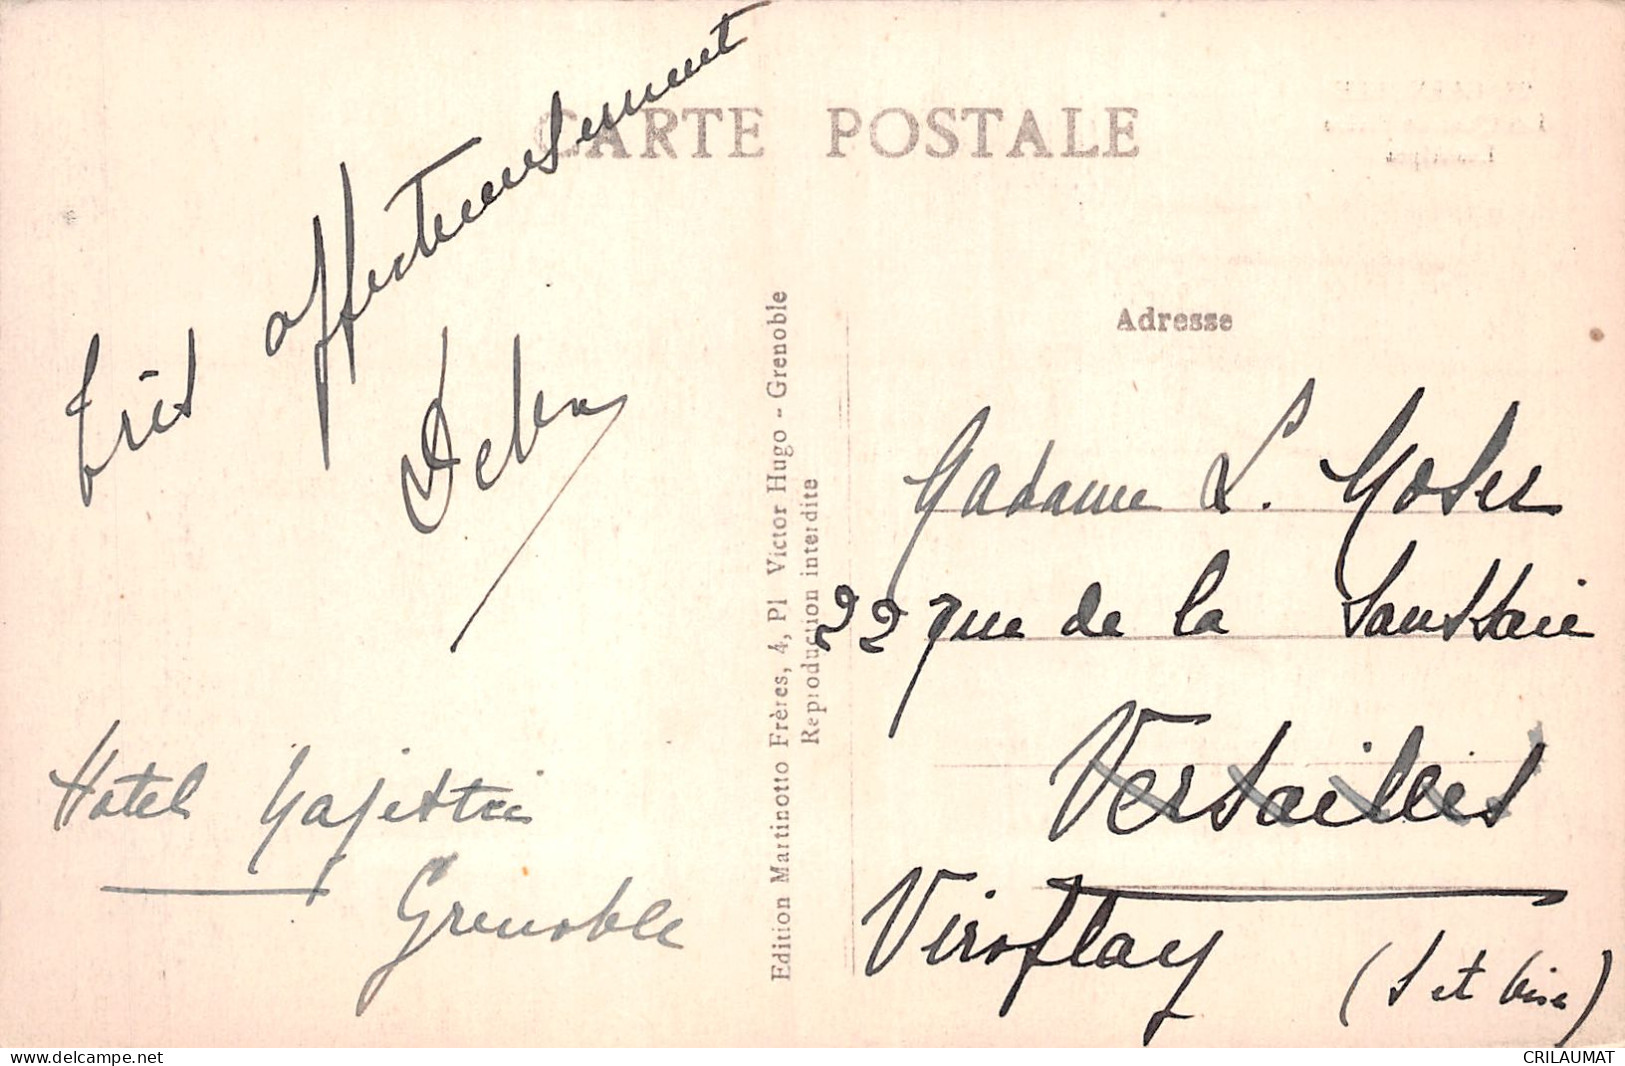 CARTE POSTALE
Très affectueusement
Hotel Majestic
Grenoble
Edition Martinotto Frères, 4, Pl Victor Hugo - Grenoble
Reproduction interdite
Adresse
Madame L. Moser
22 rue de la Saussaie
Versailles
Viroflay
(S et Oise)
CRILAUMAT